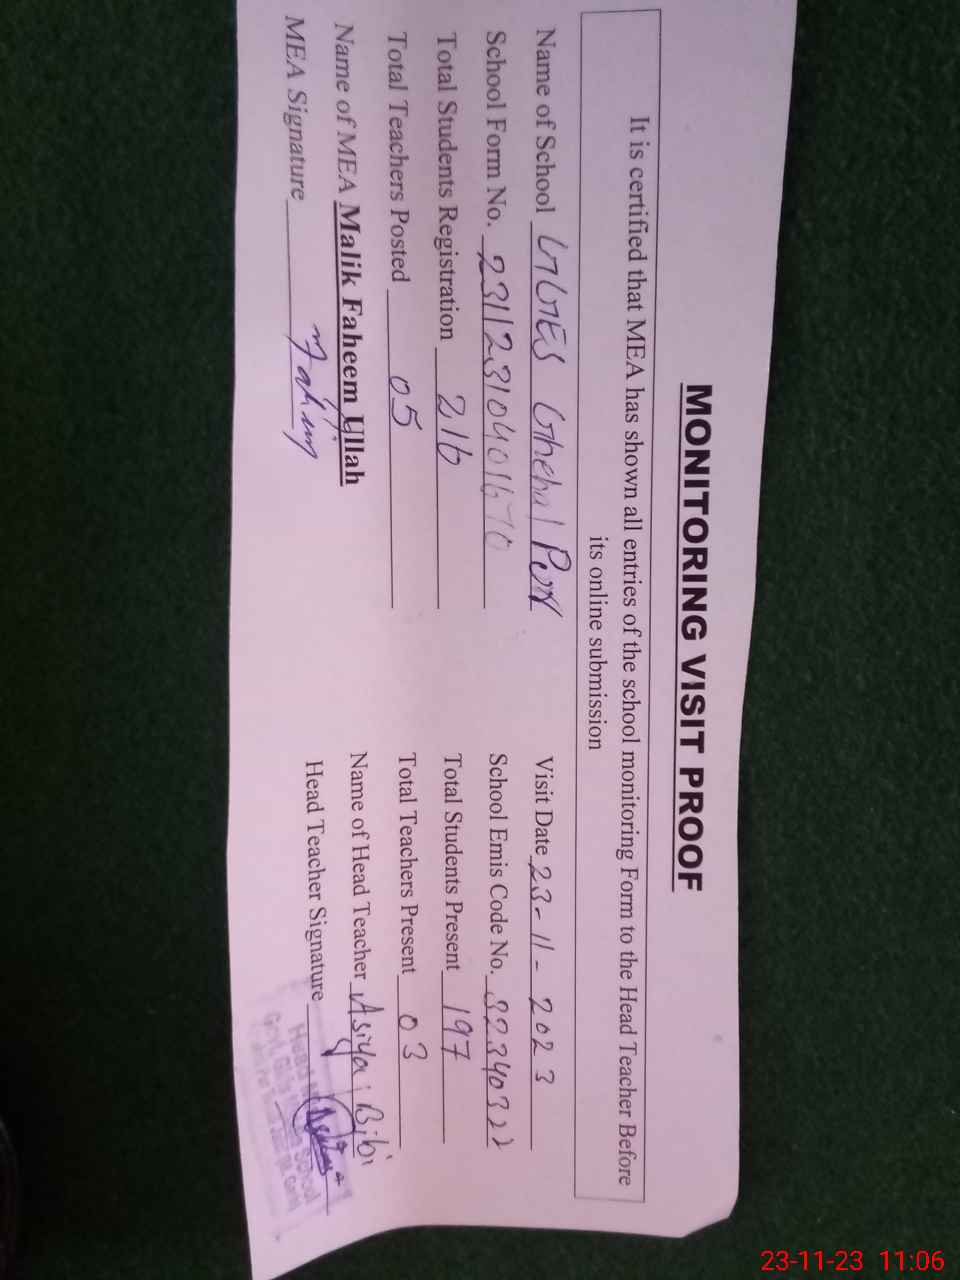 MONITORING VISIT PROOF
It is certified that MEA has shown all entries of the school monitoring Form to the Head Teacher Before
its online submission
Name of School GGES Ghehal Visit Date 23-11-2023
School Form No. 231123104401670 School Emis Code No. 32340322
Total Students Registration 216 Total Students Present 197
Total Teachers Posted 05 Total Teachers Present 03
Name of MEA Malik Faheem Ullah Name of Head Teacher Asiya Bibi
MEA Signature Fahim Head Teacher Signature
Head School
Govt. Girls
23-11-23 11:06